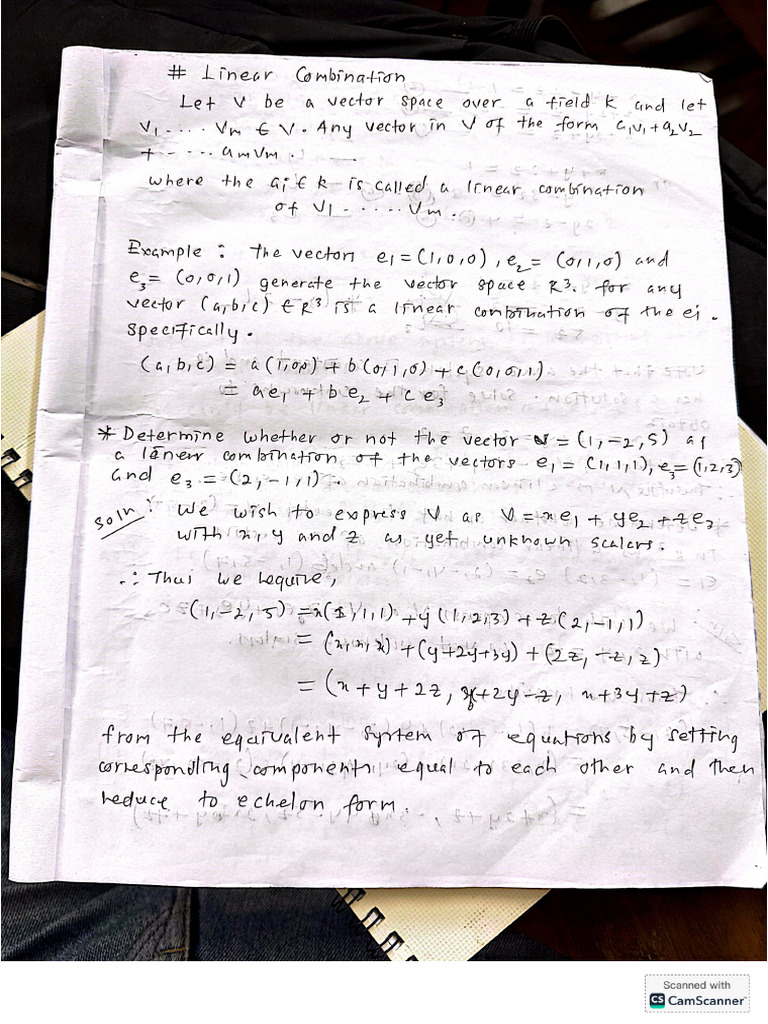 # Linear Combination
Let V be a vector space over a field K and let
V1 . . . . Vm ∈ V. Any vector in V of the form a1V1 + a2V2
+ - . . . amVm .
where the ai ∈ k is called a linear combination
of V1 - . . . . Vm .
Example : The vectors e1 = (1,0,0), e2 = (0,1,0) and
e3 = (0,0,1) generate the vector space R3. for any
vector (a,b,c) ∈ R3 is a linear combination of the ei .
Specifically.
(a,b,c) = a(1,0,0) + b(0,1,0) + c(0,0,1)
= ae1 + be2 + ce3
* Determine whether or not the vector v = (1,-2,5) as
a linear combination of the vectors e1 = (1,1,1), e2 = (1,2,3)
and e3 = (2,-1,1).
soln : We wish to express V as V = xe1 + ye2 + ze3
with x, y and z as yet unknown scalars.
∴ Thus we require,
(1,-2,5) = x(1,1,1) + y(1,2,3) + z(2,-1,1)
= (x,x,x) + (y+2y+3y) + (2z,-z,z)
= (x+y+2z, x+2y-z, x+3y+z)
from the equivalent system of equations by setting
corresponding components equal to each other and then
reduce to echelon form.
Scanned with
CS CamScanner